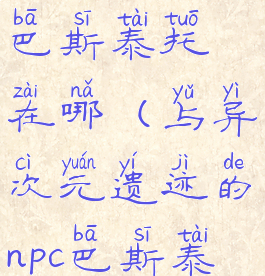 bā sī tài tuō
巴斯泰托
zài nǎ yǔ yì
在哪（与异
cì yuán yí jì de
次元遗迹的
bā sī tài
npc巴斯泰